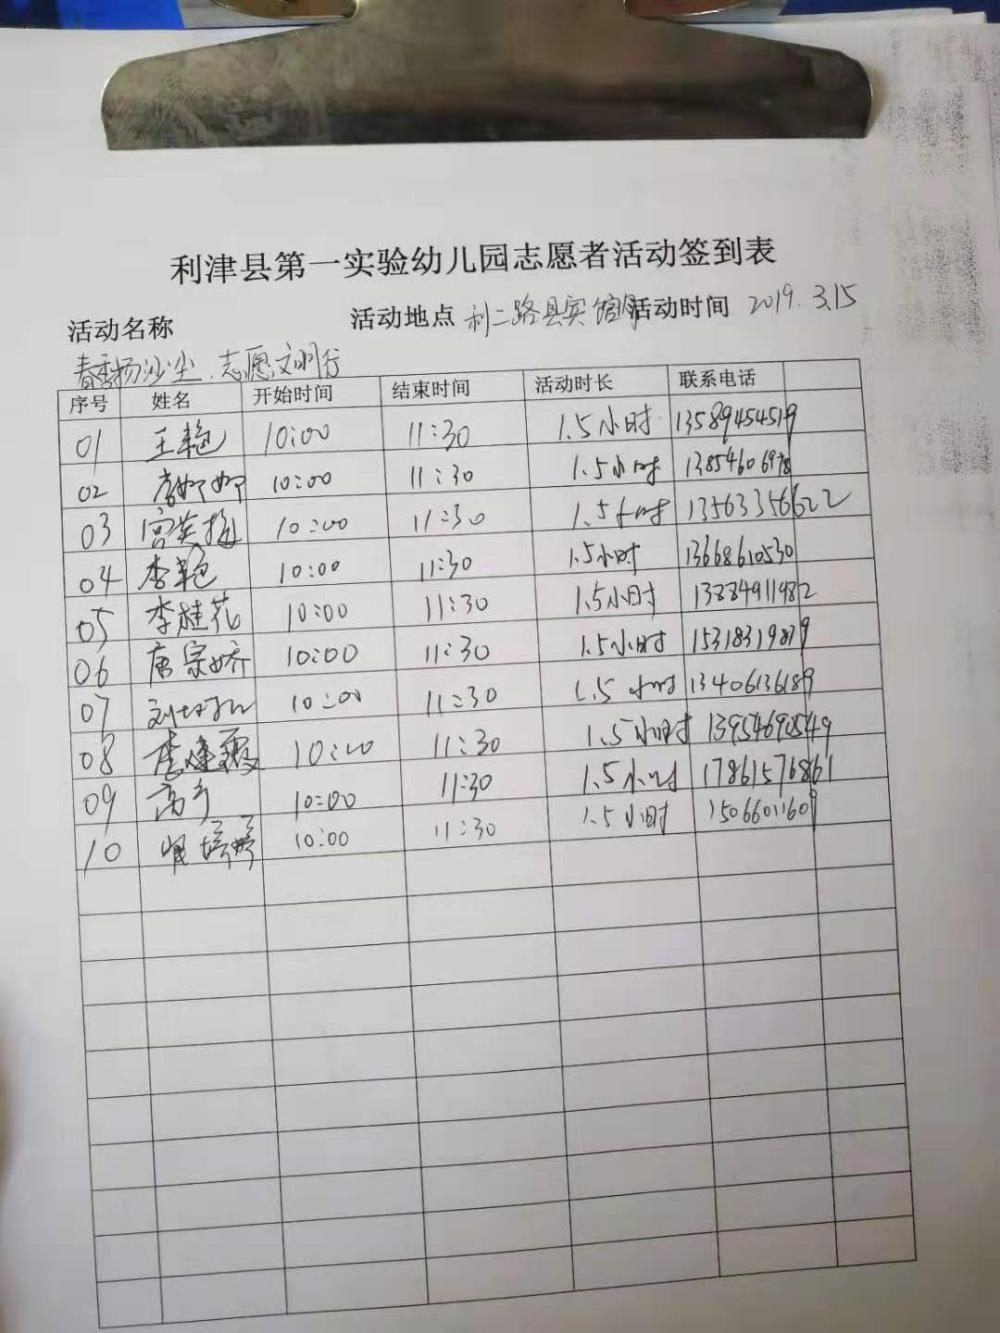 利津县第一实验幼儿园志愿者活动签到表
活动名称 活动地点 利二路县实 活动时间 2019.3.15
春季扬沙尘,志愿文明行
序号 姓名 开始时间 结束时间 活动时长 联系电话
01 王艳 10:00 11:30 1.5小时 13589454519
02 李娜娜 10:00 11:30 1.5小时 13854606978
03 宫英梅 10:00 11:30 1.5小时 13563356622
04 李艳 10:00 11:30 1.5小时 13668610530
05 李桂花 10:00 11:30 1.5小时 13884911982
06 唐宗娇 10:00 11:30 1.5小时 15318319879
07 刘 10:00 11:30 1.5小时 13406136189
08 李建霞 10:00 11:30 1.5小时 13954690549
09 高 10:00 11:30 1.5小时 17861576861
10 10:00 11:30 1.5小时 15066011609